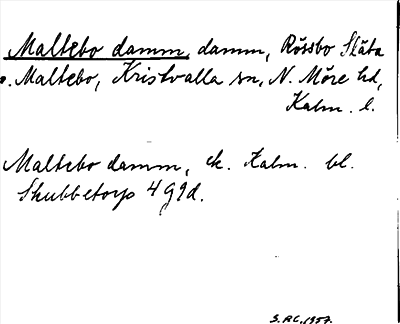 Maltebo damm, damm, Rössbo Släta
o. Maltebo, Kristvalla sn, N. Möre hd,
Kalm. l.
Maltebo damm, ek. Kalm. bl.
Skubbetorp 4G9d.
S.RC. 1957.